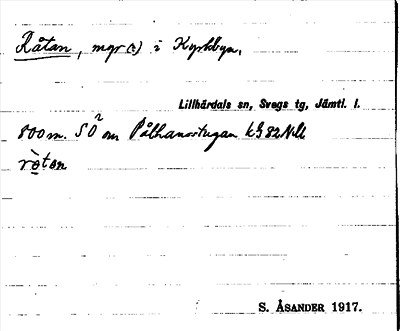 Råtan, mgr (?) i Kyrkbyn,
Lillhärdals sn, Svegs tg, Jämtl. l.
800 m. SO om Pålhansstugan
rò̤tan
S. ÅSANDER 1917.